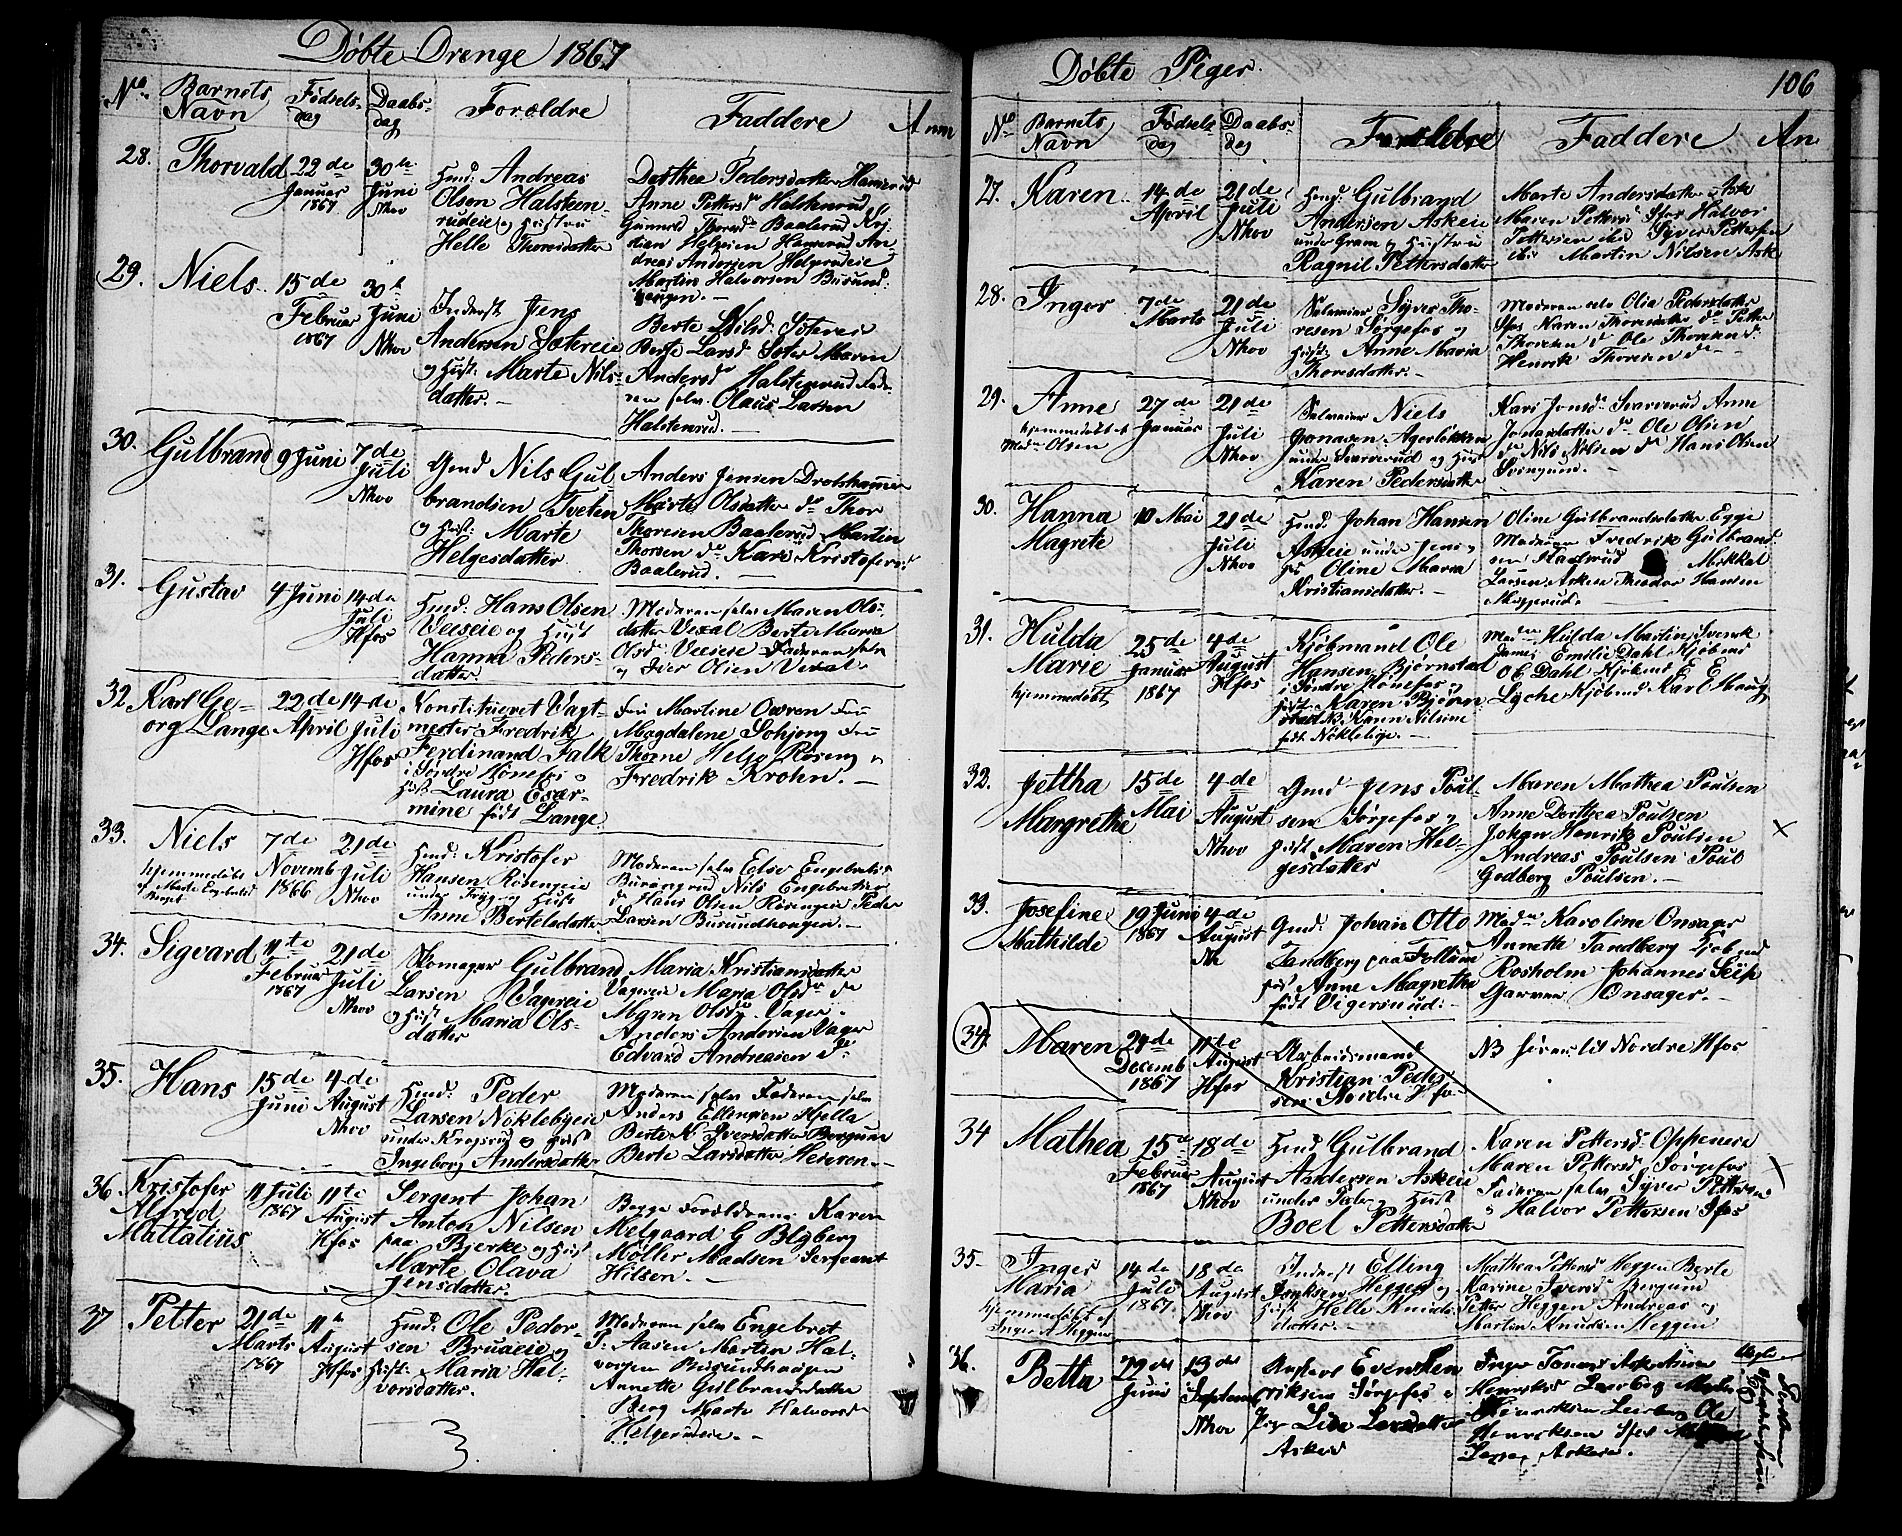 Døbte Drenge 1867
No. Barnets Navn Fødsels-dag Daabs-dag Forældre Faddere Anm
28. Thorvald 22de Januar 1867 30te Juni Nhov
Gmd: Andreas
Olsen Halsteen-
rudeie og Hustru
Helle Thoresdatter
Dorthea Pedersdatter Hamerud
Anne Petters Halstenrud
Gunnild Thoresd Baalerud Kri
stian Helgesen Hamerud An
dreas Andersen Helgerudeie
Martin Halvorsen Busund
hengen. —
29. Niels 15de Februar 1867 30te Juni Nhov
Inderst Jens
Andersen Sætereie
og Hust: Marte Nils-
datter. —
Berte Nilsd: Sætereie
Berte Larsd Sæter Maren
Andersd Halstenrud Fade-
ren selv. Olaus Larsen
Halstenrud. —
30. Gulbrand 9 Juni 7de Juli Nhov
Gmd Nils Gul
brandsen Tveten
og Hust: Marte
Helgesdatter
Anders Jensen Drolshammer
Marte Olsdatter do Thor
Thoresen Baalerud Martin
Thorsen do Kari Kristofersd
Baalerud. —
31. Gustav 4 Juni 14de Juli Hfos
Hmd: Hans Olsen
Veiseie og Hust
Hanna Peders-
datter
Moderen selv Maren Ols-
datter Vexal Berte Maria
Olsd: Veiseie Faderen selv
og Iver Olsen Vexal. —
32 Karl Ge-
org Lange 22de April 14de Juli Hfos
Konstitueret Vagt-
mester Fredrik
Ferdinand Falk
i Søndre Hønefos og
Hust: Laura Exar-
mine født Lange.
Fru Martine Owren Fru
Magdalene Sohjeng Fru
Thorne Helge Roseng og
Fredrik Krohn. —
33. Niels 7de Novemb 1866 21de Juli Nhov
hjemmedøbt
af Marte Engebretsd
Hmd: Kristofer
Hansen Rosengeie
under Tryg og Hust
Anne Bertelsdatter
Moderen selv Else Engebretsd
Burengrud Nils Engebretsen
do Hans Olsen Rosengeie Peder
Larsen Busundhengen. —
34. Sigvard 11te Februar 1867 21de Juli Nhov
Skomager Gulbrand
Larsen Vagereie
og Hust Maria Ols-
datter
Maria Kristiansdatter
Vagereie Maria Olsdr do
Maren Olsdr Vager.
Anders Andersen Vager
Edvard Andreasen do
35. Hans 15de Juni 4de August Nhov
Hmd: Peder
Larsen Noklebyeie
under Krogsrud og Hust
Ingeborg Andersdatter
Moderen selv Faderen selv
Anders Ellingsen Hjella
Berte K Iversdatter Borgum
Berte Larsdatter Henren. —
36 Kristofer
Alfred
Mattatius 11 Juli 1867 11te August Hfos
Sergent Johan
Anton Nilsen
paa Bjerke og Hust
Marte Olava
Jensdatter.
Begge Forældrene Karen
Melgaard G Blyberg
Møller Madsen Sergeant
Hilsen. —
37 Petter 21de Marts 1867 11te August Hfos
Hmd: Ole Peder-
sen Bruaeie og
Hust: Maria Hal-
vorsdatter.
Moderen selv Engebret
P: Aasen Martin Hal-
vorsen Busundhaugen
Annette Gulbrandsdatter
Berg Marte Halvorsd
Helgerudeie. —
Døbte Piger. 106
No Barnets Navn Fødsels-dag Daabs-dag Forældre Faddere An
27. Karen 14de April 21de Juli Nhov
Hmd: Gulbrand
Andersen Askeie
under Gram og Hustru
Ragnil Pettersdatter
Marte Andersdatter Ask
Maren Pettersd Hfos Halvor
Pettersen ibid Syver Pettersen
ibi Martin Nilsen Ask
28. Inger 7de Marts 21de Juli Nhov
Selveier Syver Tho-
resen Sørgefos og
Hust: Anne Maria
Thoresdatter. —
Moderen selv Olia Pedersdatter
Hfos Karen Thoresdatter do Petter
Thoresen do Ole Thoresen d:
Henrik Thoresen do —
29. Anne 27de Januar 21de Juli Nhov
hjemmedøbt af
Madm Olsen
Selveier Niels
Jonasen Agerløkken
under Svarverud og Hust
Karen Pedersdatter
Kari Jonsdr Svarverud Anne
Jonasdatter do Ole Olsen
do Nils Nilsen do Hans Olsen
Svingum. —
30. Hanna
Magrete 10 Mai 21de Juli Nhov
Hmd: Johan Hansen
Askeie under Gram og
Hust Oline Maria
Kristiansdatter. —
Oline Gulbrandsdatter Egge
Moderen Fredrik Gulbrand
Mikkel
Larsen Asken Theodor Hansen
31. Hulda
Marie 25de Januar 1867 4de August Hfos
hjemmedøbt
Kjøbmand Ole
Hansen Bjørnstad
i Søndre Hønefos og
Hust: Karen Bjørn
stad NB. Karen Nilsine
født Noklebye. —
Madm Hulda Martin Svensk
Emilie Dahl Kjøbmd
O G Dahl Kjøbmd E E
Lyche Kjøbmd Karl Haug
32. Jettha
Margrethe 15de Mai 4de August Nhov
Gmd Jens Poul-
sen Sørgefos og
Hust: Maren Hel-
gesdatter
Maren Mathea Poulsen
Anne Dorthea Poulsen
Johan Henrik Poulsen
Andreas Poulsen Poul
Godberg Poulsen. —
X
33. Josefine
Mathilde 19 Juni 1867 4de August Nh
Gmd: Johan Otto
Tandberg paa Follum
Hust Anne Magrethe
født Vigersund:
Madm Karoline Onsager
Annette Tandberg Kjøbmd
Rosholm Johannes Seip
Garver Onsager. —
34. Maren 29de Decemb 1867 11te August Hfos
Arbeidsmand
Kristian Peder
sen Nordre Hfos
NB hører til Nordre Hfos
34 Mathea 15de Februar 1867 18de August Nhov
Hmd Gulbrand
Andersen Askeie
under Pale og Hust
Boel Pettersdatter
Karen Pettersd: Oppeneie
Maren Pettersd Sørgefos
Faderen selv Syver Pettersen
og Halvor Pettersen Hfos
35. Inger
Maria 14de Juli 1867. 18de August Nhov
hjemmedøbt af
Inger A Heggen
Inderst Elling
Eriksen Heggen og
Hust: Helle Knuds-
datter. —
Mathea Pettersd Heggen Berte
Karine Iversd Bergum
Petter Heggen Andreas og
Martin Knudsen Heggen
36. Betta 29de Juni 13de September Nhov
Inderst Even Sten
Eriksen Sørgefos og
Lise Larsdatter
Askeie
Inger Jonasd Ask Anne
Henriksd Leerberg
Henriksen Leerberg Ole
Henriksen Hfos
Larsen Askeie.